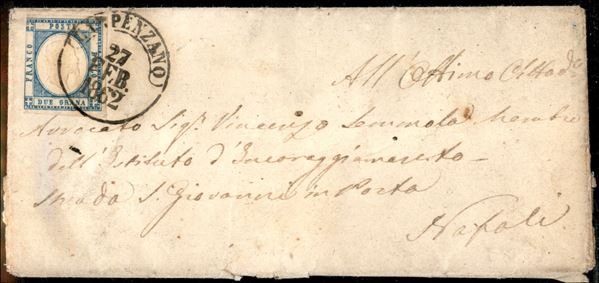 FRANCO POSTE
DUE GRANA
PENZANO
27
FEB.
1862
All'Ottimo Cittado
Avvocato Sigr Vincenzo Semmola Membro
dell'Istituto d'Incoraggiamento
Strada S. Giovanni in Porta
Napoli